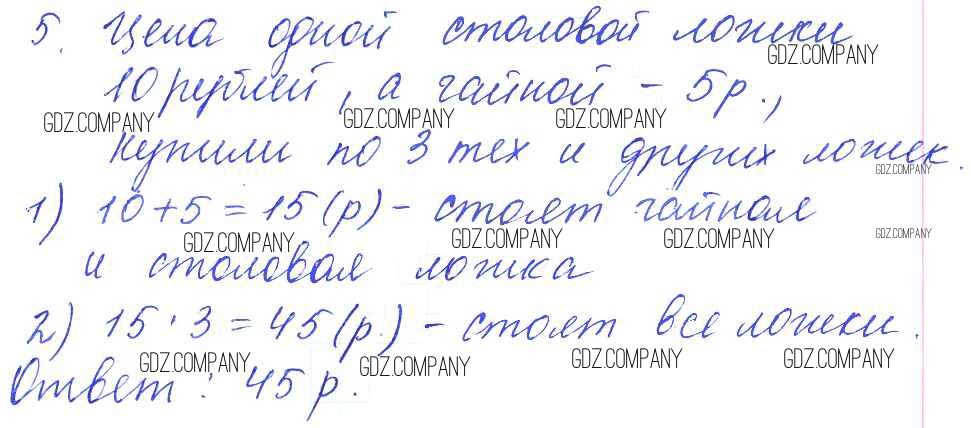 5. Цена одной столовой ложки
GDZ.COMPANY
10 рублей, а чайной - 5р.,
GDZ.COMPANY GDZ.COMPANY GDZ.COMPANY
купили по 3 тех и других ложек.
GDZ.COMPANY
1) 10+5=15(р) - стоят чайная
GDZ.COMPANY GDZ.COMPANY GDZ.COMPANY GDZ.COMPANY
и столовая ложка
2) 15·3=45(р.) - стоят все ложки.
GDZ.COMPANY GDZ.COMPANY GDZ.COMPANY GDZ.COMPANY
Ответ: 45р.